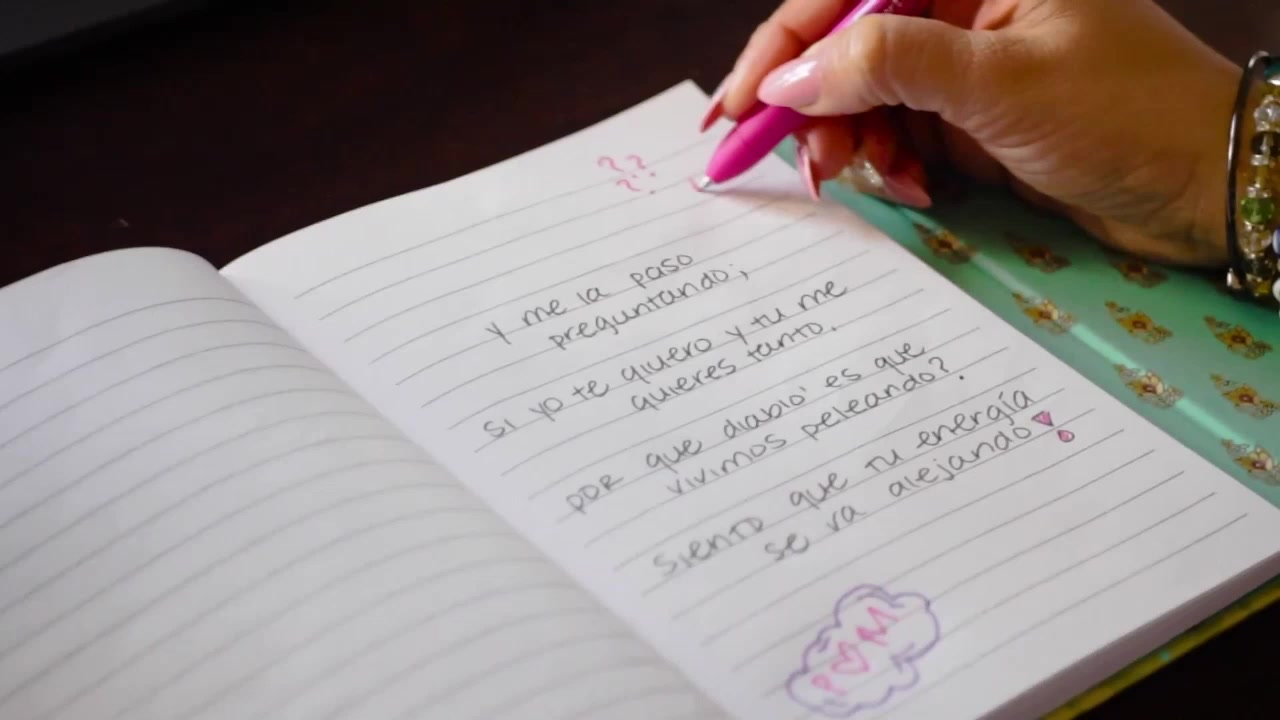 ? ?
? ?
y me la paso
preguntando;
si yo te quiero y tu me
quieres tanto.
por que diablo' es que
vivimos peleando?.
siento que tu energía
se va alejando!
P ♡ M